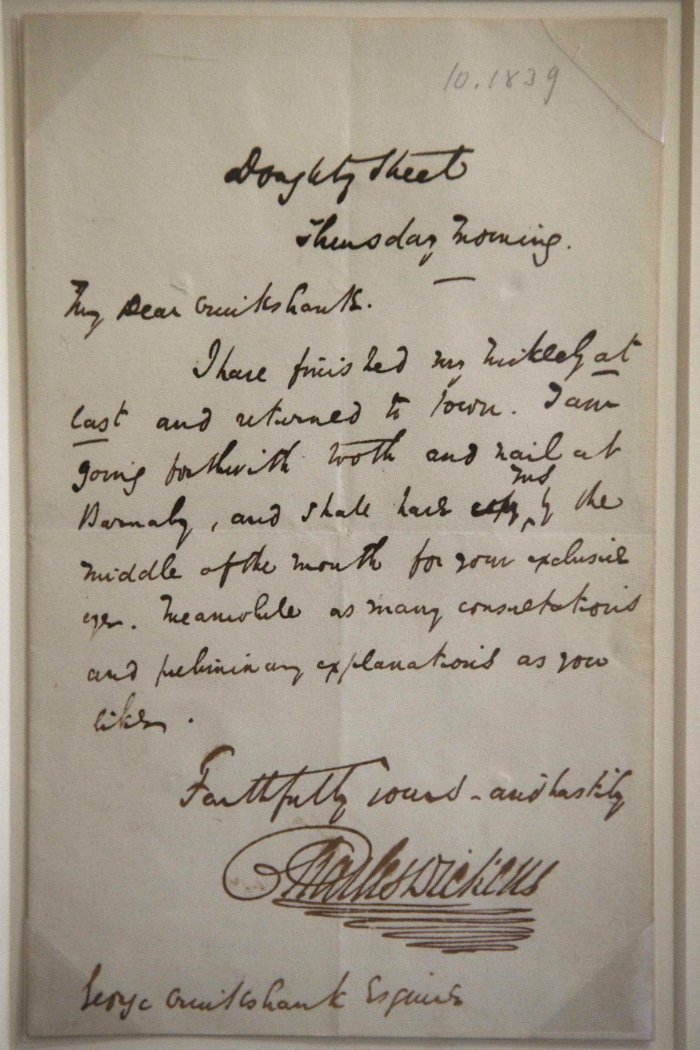 10.1839
Doughty Street
Thursday Morning.
My Dear Cruikshank.
I have finished my Nickleby at
last and returned to Town. I am
going forthwith tooth and nail at
Barnaby, and shall have MS by the
middle of the month for your exclusive
eyes. Meanwhile as many consultations
and preliminary explanations as you
like.
Faithfully Yours - and hastily
Charles Dickens
George Cruikshank Esquire